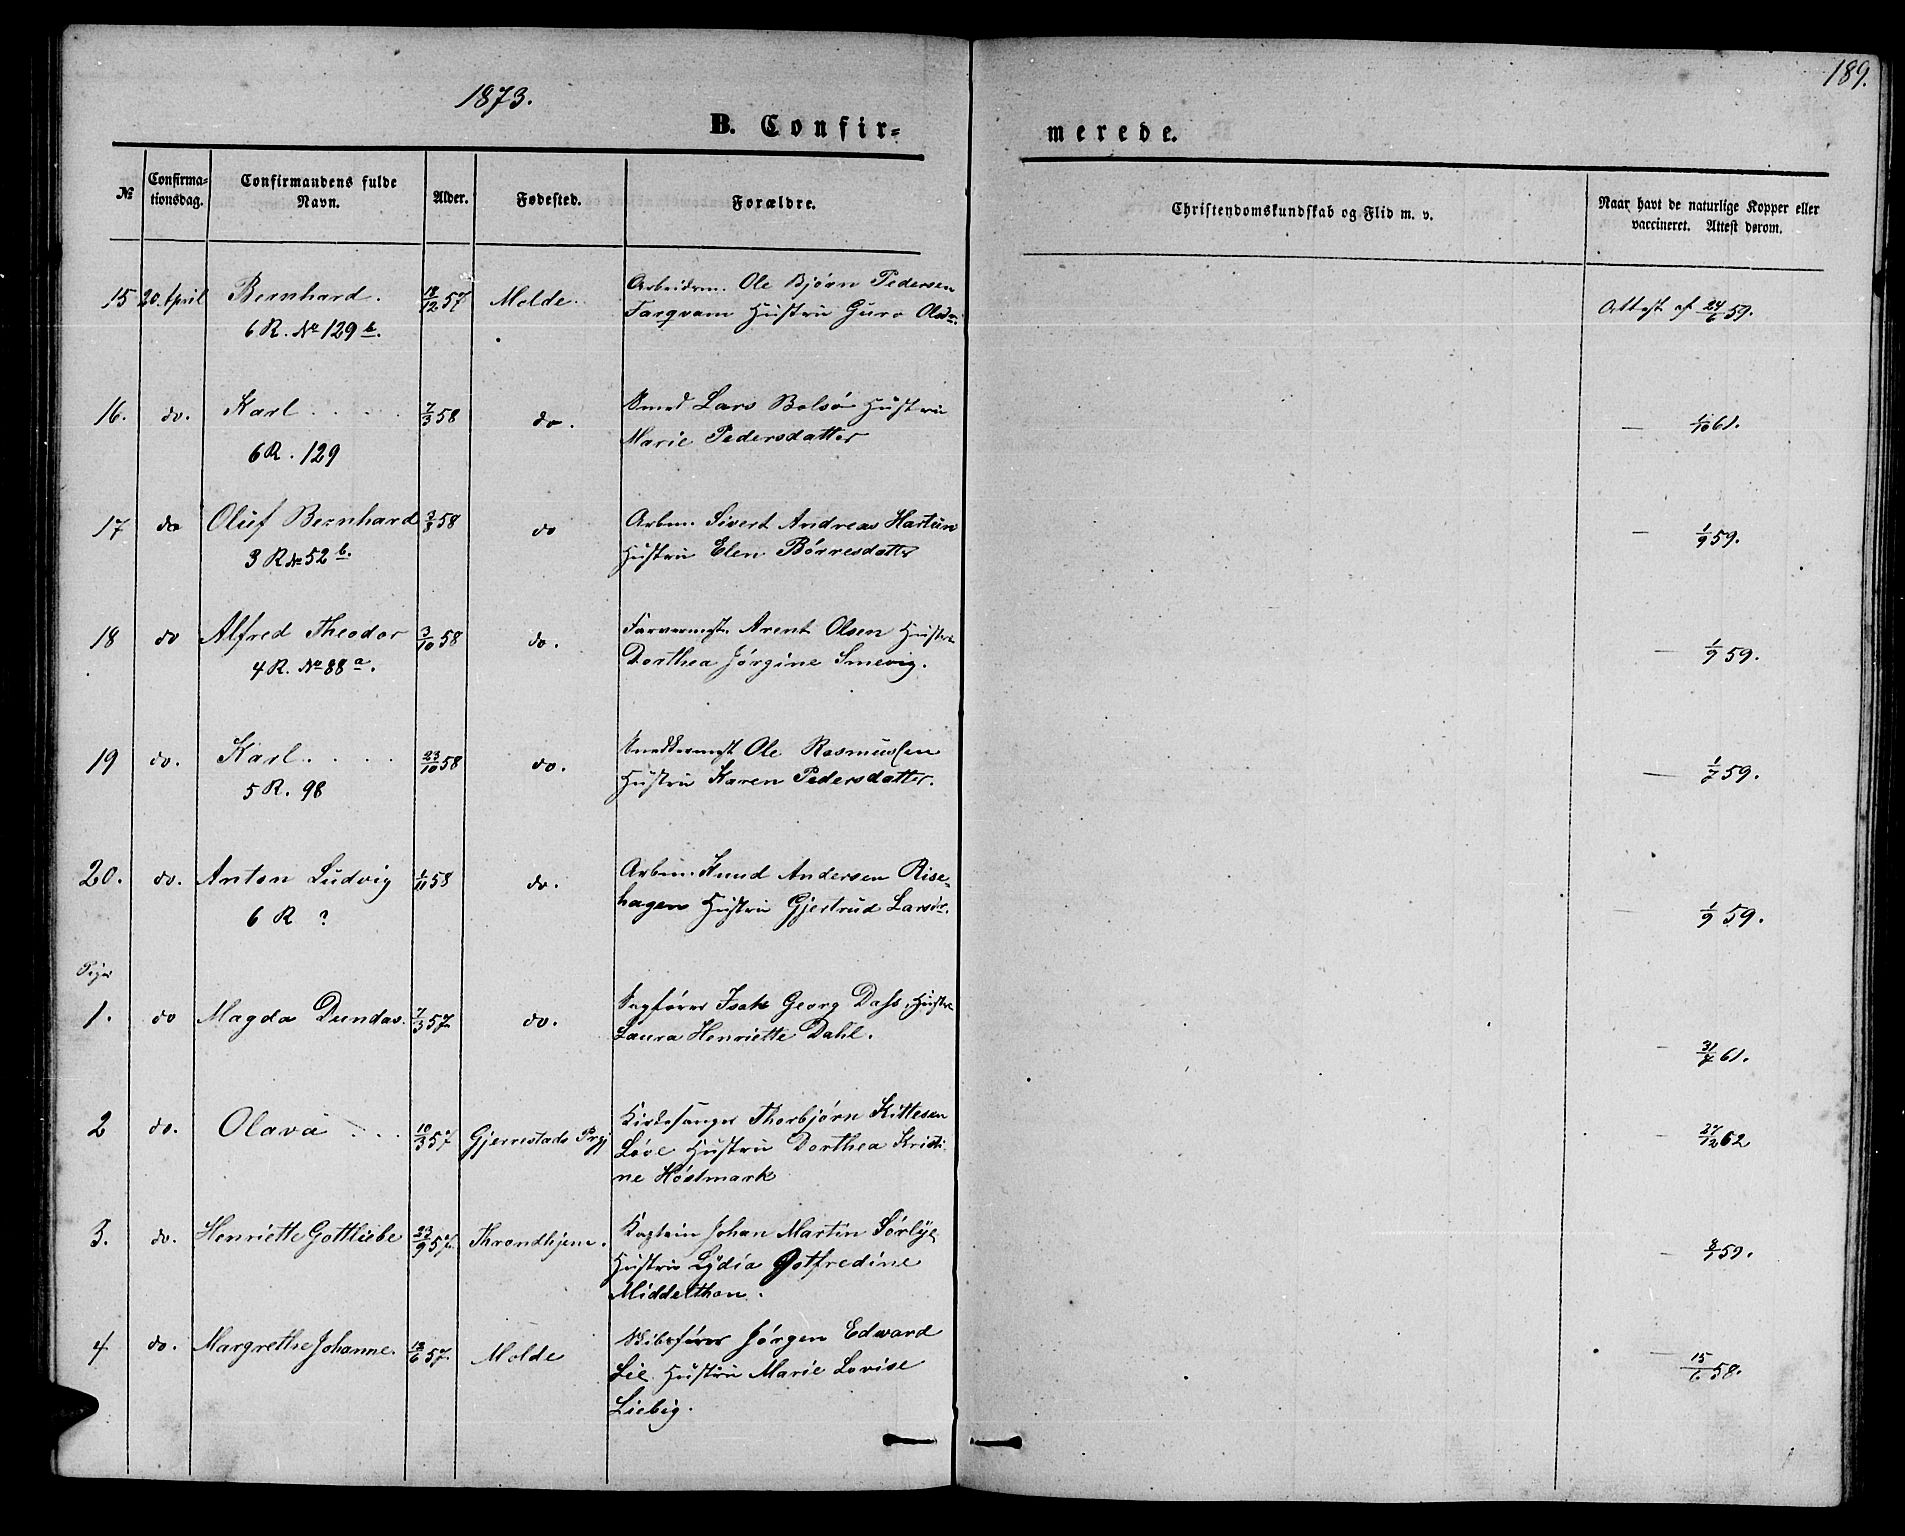 189.
1873.
B. Confir=
merede.
№
Confirma=
tionsdag.
Confirmandens fulde
Navn.
Alder.
Fødested.
Forældre.
Christendomskundskab og Flid m. v.
Naar havt de naturlige Kopper eller
vaccineret. Attest derom.
15 20. April Bernhard. 18/12 57 Molde. Arbeidsm. Ole Bjørn Pedersen
Farqvam Hustru Guro Olsdr.
6 R. No 129 b.
Attest af 24/6 59.
16. do. Karl . . . . 7/3 58 do. Smed Lars Bolsø Hustru
Marie Pedersdatter
6 R. 129
— 1/10 61.
17 do Oluf Bernhard 3/8 58 do Arbm. Sivert Andreas Hartun
Hustru Elen Børresdatter
3 R No 52 b.
— 1/9 59.
18 do Alfred Theodor 3/10 58 do. Farvermstr. Arent Olsen Hustru
Dorthea Jørgine Smevig.
4 R. No 88 a.
— 1/9 59.
19 do. Karl . . . . 23/10 58 do. Snedkermest Ole Rasmussen
Hustru Karen Pedersdatter.
5 R. 98
— 1/7 59.
20. do. Anton Ludvig 1/11 58 do. Arbm. Knud Andersen Rise=
hagen Hustru Gjertrud Larsdr.
6 R ?
— 1/9 59.
Piger
1. do Magda Dundas. 7/3 57. do. Sagfører Isak Georg Dass, Hustru
Laura Henriette Dahl.
— 31/7 61.
2 do. Olava . . . 10/3 57 Gjerrestads Prgj Kirkesanger Thorbjørn Kittesen
Løve Hustru Dorthea Kristi-
ne Høstmark
— 27/12 62
3. do. Henriette Gottliebe 23/9 57. Throndhjem. Kaptein Johan Martin Sørlye
Hustru Lydia Gotfredine
Middelthon.
— 8/7 59.
4 do. Margrethe Johanne. 12/6 57. Molde Skibsfører Jørgen Edward
Lie. Hustru Marie Lovise
Liebig.
— 15/6 58.